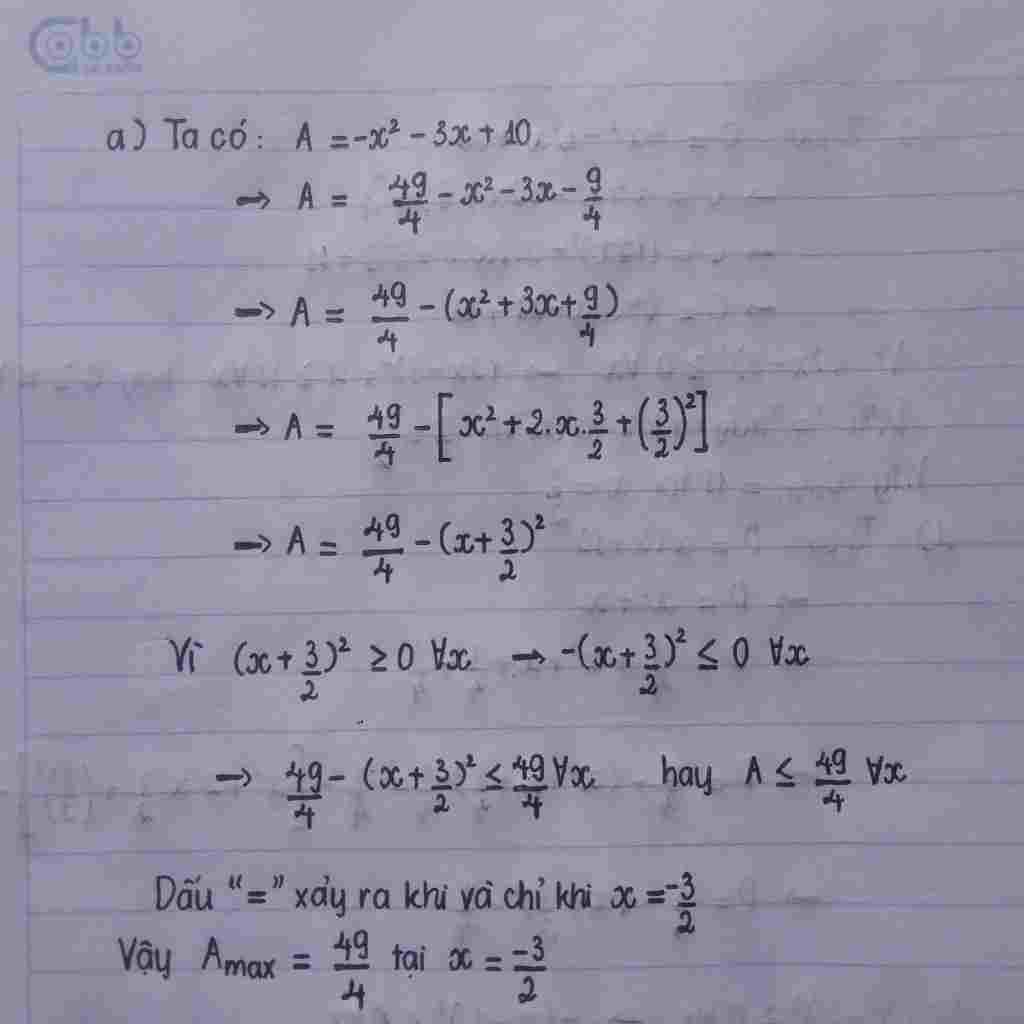 Cabb
a) Ta có: A = -x² - 3x + 10
⇒ A = 49/4 - x² - 3x - 9/4
⇒ A = 49/4 - (x² + 3x + 9/4)
⇒ A = 49/4 - [x² + 2.x.3/2 + (3/2)²]
⇒ A = 49/4 - (x + 3/2)²
Vì (x + 3/2)² ≥ 0 ∀x → -(x + 3/2)² ≤ 0 ∀x
⇒ 49/4 - (x + 3/2)² ≤ 49/4 ∀x hay A ≤ 49/4 ∀x
Dấu “=” xảy ra khi và chỉ khi x = -3/2
Vậy Amax = 49/4 tại x = -3/2